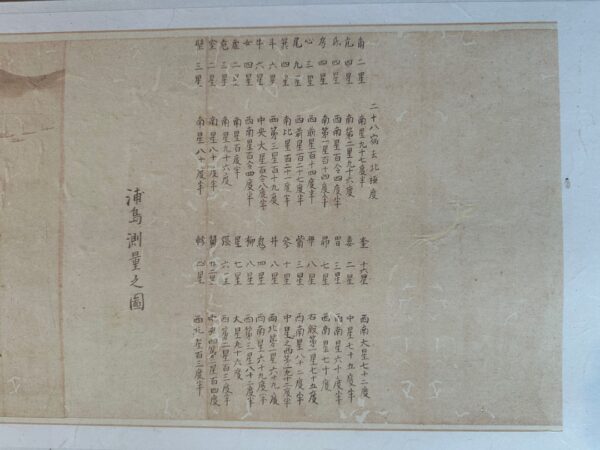 二十八宿去北極度
角二星 南星九十七度半
亢四星 南第二星九十六度
氐四星 西南星百令四度半
房四星 南第一星百十四度半
心三星 西前星百十四度半
尾九星 西前星百二十七度半
箕四星 南比星百二十一度半
斗六星 西第三星百十九度
牛六星 中央大星百令八度半
女四星 西南星百令四度半
虚二星 南星百度半
危三星 南星九十六度
室二星 南星八十一度半
壁三星 南星八十一度半
奎十六星 西南大星七十二度
婁二星 中星七十五度半
胃三星 西南星六十七度半
昴七星 西南星七十度
畢八星 右股第一星七十五度
觜三星 西南星八十二度半
参十星 中星之西第一九十二度半
井八星 西北第一星六十九度
鬼四星 西南星六十九度半
柳八星 西第三星八十二度半
星七星 大星九十六度
張六星 西第二星百三度半
翼星 中央西第二星百四度
軫星 西北星百三度半
浦島測量之圖